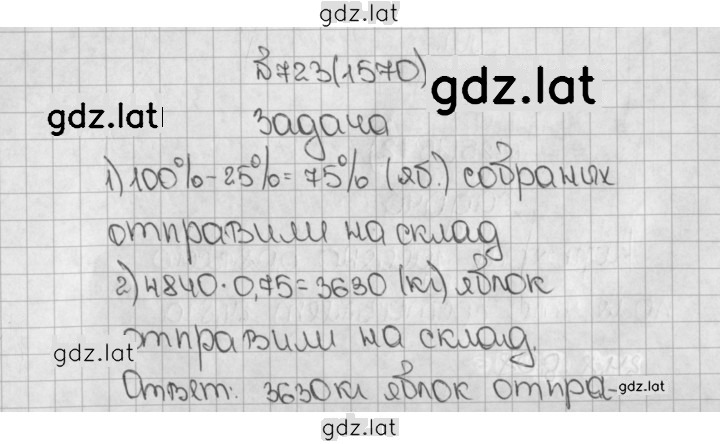 gdz.lat
№723(1570)
gdz.lat
gdz.lat
задача
1) 100%-25%=75% (яб.) собраних
отправили на склад
2) 4840·0,75=3630 (кг) яблок
отправили на склад.
gdz.lat
Ответ: 3630кг яблок отпра-
gdz.lat
gdz.lat